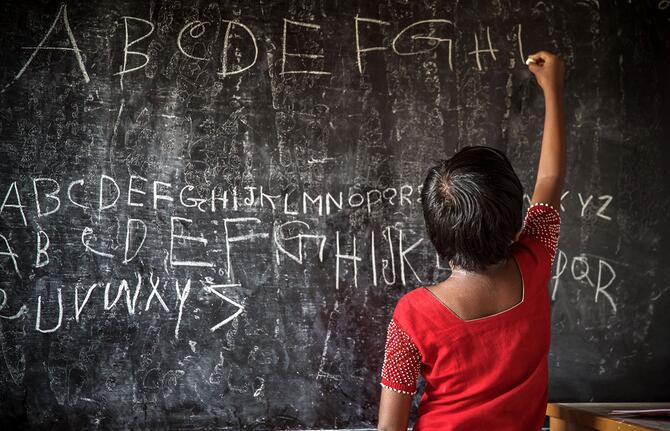 A B C D E F G H I
A B C D E F G H I J K L M N O P Q R X Y Z
A B C D E F G H I J K L P Q R
U V W X Y Z